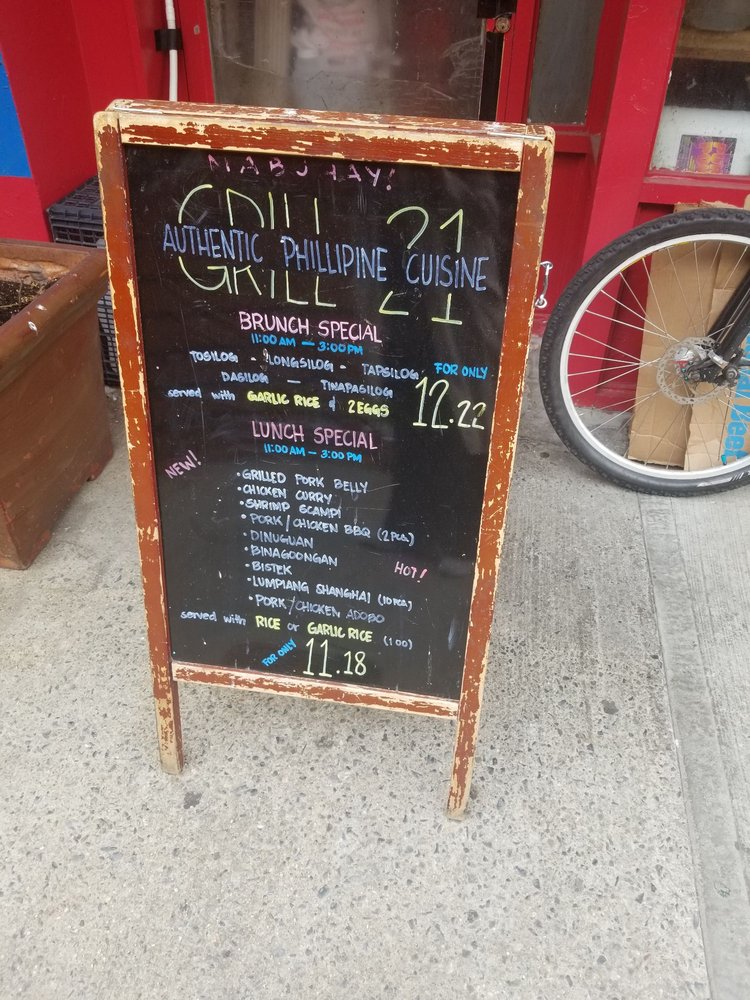 MABUHAY!
GRILL 21
AUTHENTIC PHILLIPINE CUISINE
BRUNCH SPECIAL
11:00 AM — 3:00 PM
TOSILOG - LONGSILOG - TAPSILOG
DASILOG — TINAPASILOG
FOR ONLY
served with GARLIC RICE & 2 EGGS
12.22
LUNCH SPECIAL
11:00 AM — 3:00 PM
NEW!
• GRILLED PORK BELLY
• CHICKEN CURRY
• SHRIMP SCAMPI
• PORK / CHICKEN BBQ (2 PCS)
• DINUGUAN
• BINAGOONGAN
• BISTEK
HOT!
• LUMPIANG SHANGHAI (10 PCS)
• PORK / CHICKEN ADOBO
served with RICE or GARLIC RICE (1.00)
FOR ONLY 11.18